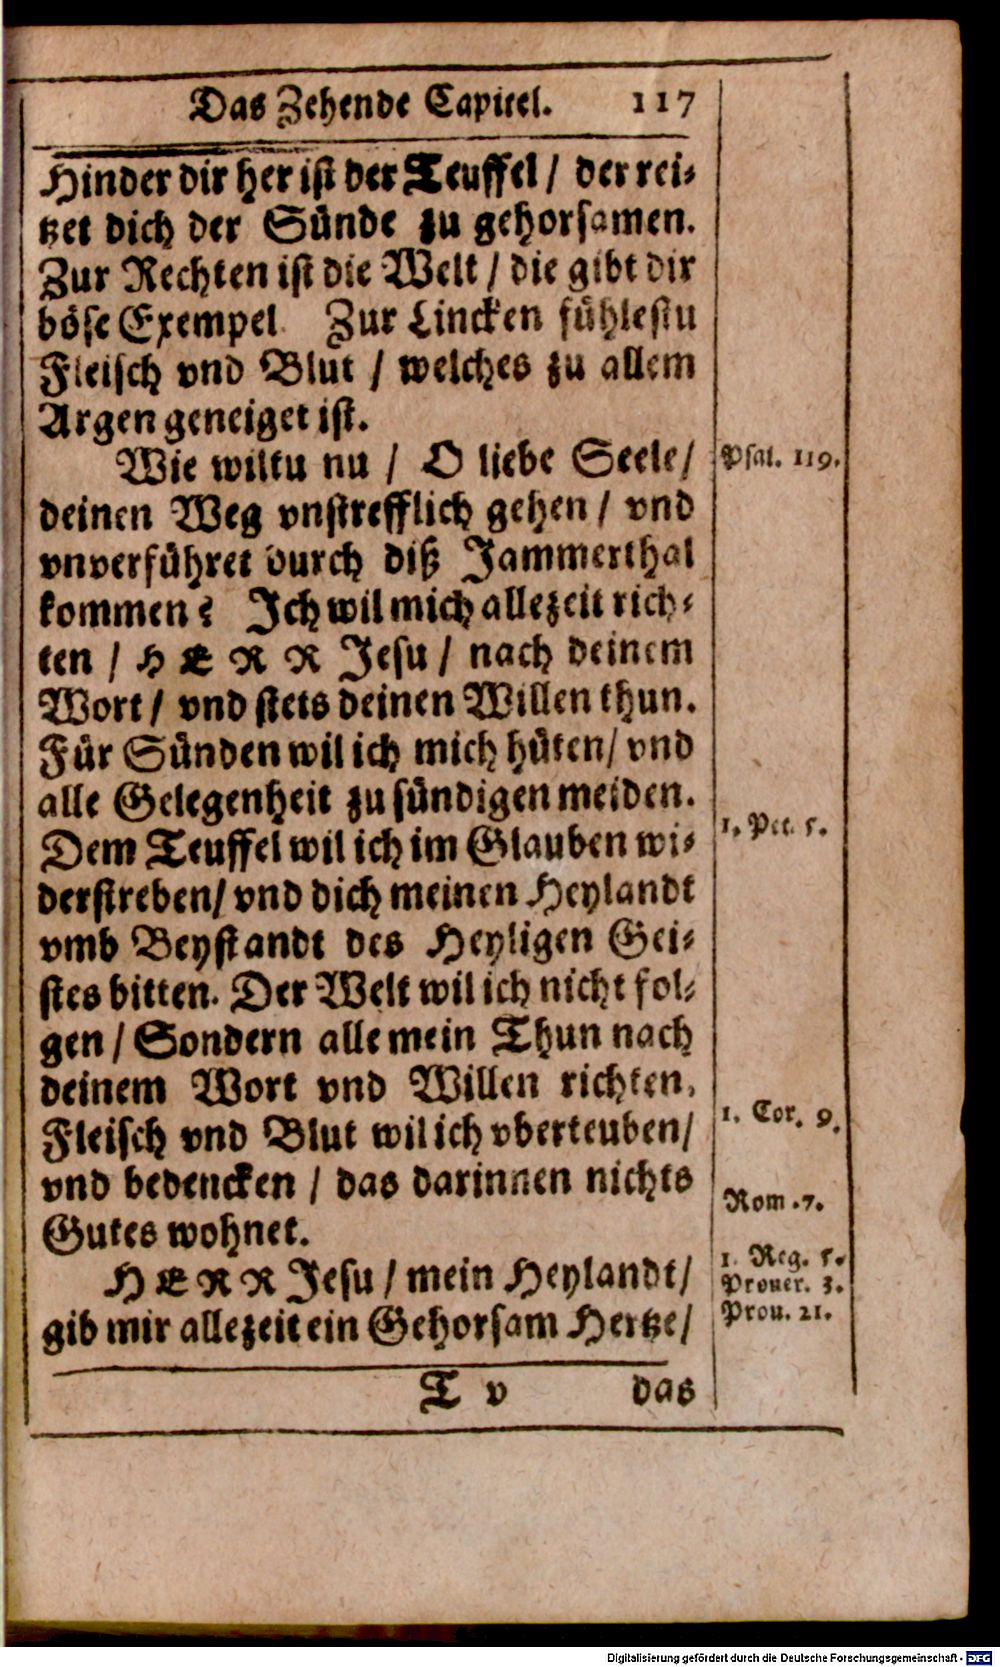 Das Zehende Capitel. 117
Hinder dir her ist der Teuffel / der rei⸗
tzet dich der Sünde zu gehorsamen.
Zur Rechten ist die Welt / die gibt dir
böse Exempel. Zur Lincken fühlestu
Fleisch vnd Blut / welches zu allem
Argen geneiget ist.
Wie wiltu nu / O liebe Seele/
Psal. 119.
deinen Weg vnstrefflich gehen / vnd
vnverführet durch diß Jammerthal
kommen? Ich wil mich allezeit rich⸗
ten / HERR Jesu / nach deinem
Wort / vnd stets deinen Willen thun.
Für Sünden wil ich mich hüten/ vnd
alle Gelegenheit zu sündigen meiden.
1. Pet. 5.
Dem Teuffel wil ich im Glauben wi⸗
derstreben/ vnd dich meinen Heylandt
vmb Beystandt des Heyligen Gei⸗
stes bitten. Der Welt wil ich nicht fol⸗
gen / Sondern alle mein Thun nach
deinem Wort vnd Willen richten.
1. Cor. 9.
Fleisch vnd Blut wil ich vberteuben/
vnd bedencken / das darinnen nichts
Rom. 7.
Gutes wohnet.
1. Reg. 5.
HERR Jesu / mein Heylandt/
Prouer. 3.
gib mir allezeit ein Gehorsam Hertze/
Prou. 21.
T v das
Digitalisierung gefördert durch die Deutsche Forschungsgemeinschaft - DFG